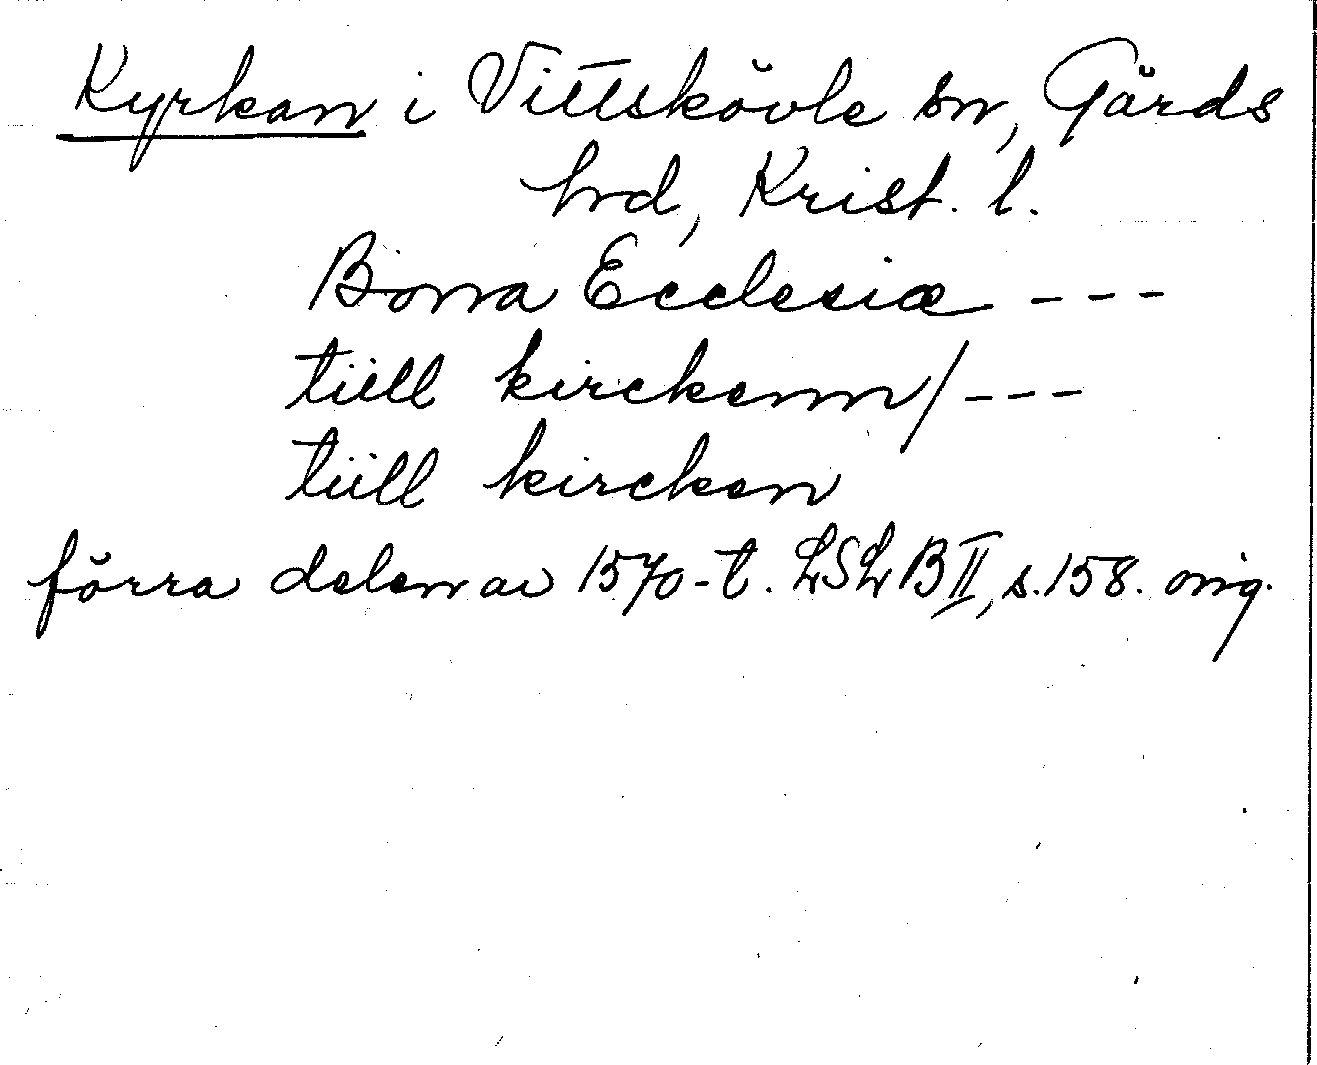 Kyrkan i Vittskövle sn, Gärds
hrd, Krist. l.
Bona Ecclesiæ - - -
tiill kirckenn/ - - -
tiill kircken
förra delen av 1570-t. LSLB II, s. 158. orig.